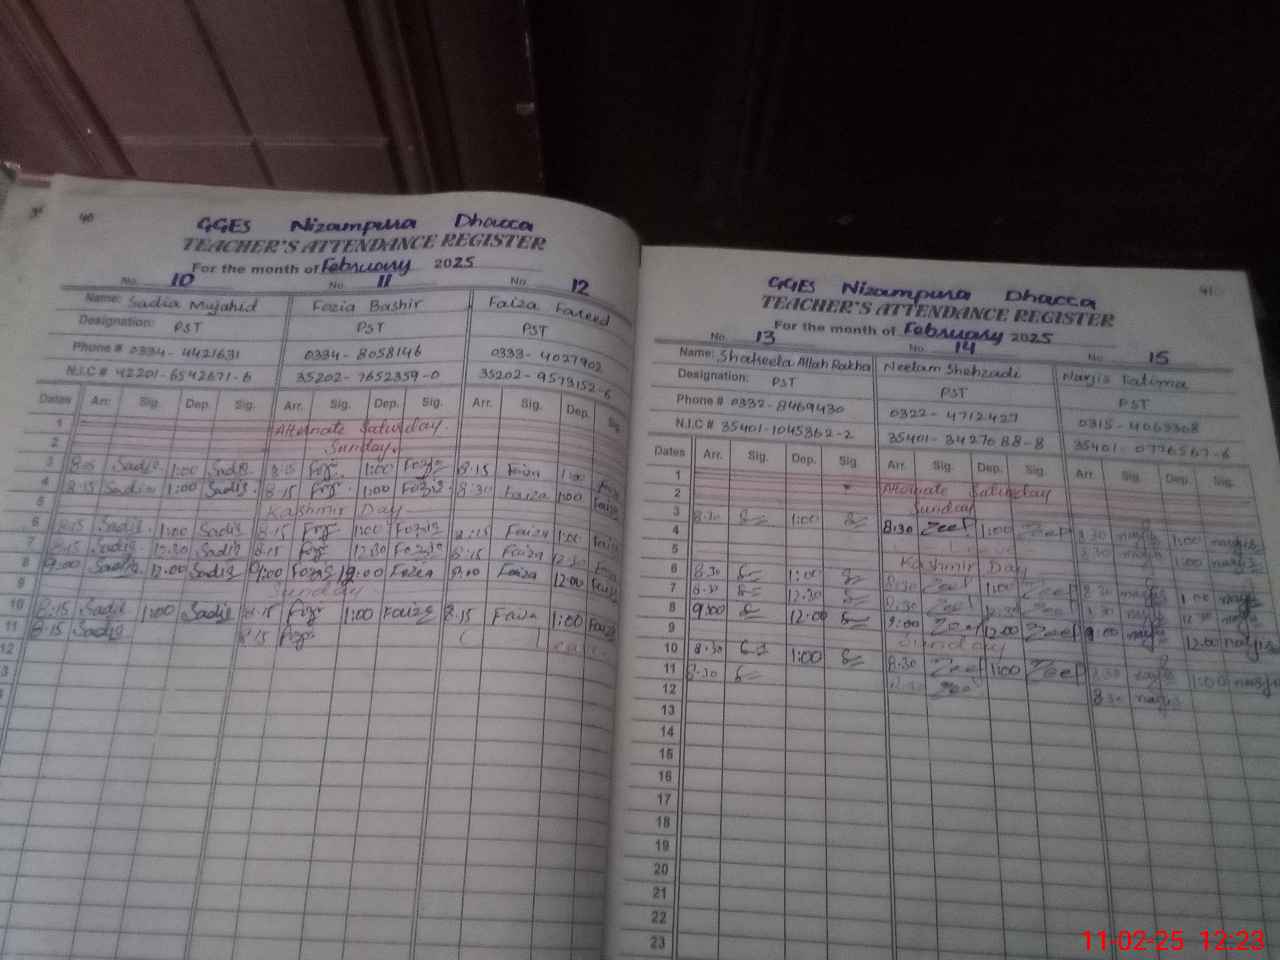 40
GGES Nizampura Dhacca
TEACHER'S ATTENDANCE REGISTER
For the month of February 2025
No. 10 No. 11 No. 12
Name: Sadia Mujahid Fozia Bashir Faiza Fareed
Designation: PST PST PST
Phone # 0334-4421631 0334-8058146 0333-4027902
N.I.C # 42201-6542671-6 35202-7652359-0 35202-9573152-6
Dates Arr. Sig. Dep. Sig. Arr. Sig. Dep. Sig. Arr. Sig. Dep. Sig.
1 Alternate Saturday
2 Sunday
3 Sadia 1:00 Sadia 8:15 1:00 Fozia 8:15 Faiza 1:00
4 8:15 Sadia 1:00 Sadia 8:15 1:00 Fozia 8:30 Faiza 1:00 Faiza
5 Kashmir Day
6 8:15 Sadia 1:00 Sadia 8:15 1:00 Fozia 8:15 Faiza 1:00 Faiza
7 8:15 Sadia 12:30 Sadia 8:15 12:30 Fozia 8:15 Faiza 12:30
8 9:00 Sadia 12:00 Sadia Fozia 12:00 Fozia 9:00 Faiza 12:00 Faiza
9 Sunday
10 8:15 Sadia 1:00 Sadia 8:15 1:00 Fozia 8:15 Faiza 1:00 Faiza
11 8:15 Sadia 8:15
12
41
GGES Nizampura Dhacca
TEACHER'S ATTENDANCE REGISTER
For the month of February 2025
No. 13 No. 14 No. 15
Name: Shakeela Allah Rakha Neelam Shehzadi Narjis Fatima
Designation: PST PST PST
Phone # 0332-8469430 0322-4712427 0315-4069308
N.I.C # 35401-1045362-2 35401-3427688-8 35401-0776567-6
Dates Arr. Sig. Dep. Sig. Arr. Sig. Dep. Sig. Arr. Sig. Dep. Sig.
1 Alternate Saturday
2 Sunday
3 8:30 1:00 8:30 Zeef 1:00 Zeef 8:30 narjis 1:00 narjis
4 8:30 narjis 1:00 narjis
5 Kashmir Day
6 8:30 1:00 8:30 Zeef 1:00 Zeef 8:30 narjis 1:00 narjis
7 8:30 12:30 8:30 Zeef 12:30 Zeef 8:30 narjis 12:30 narjis
8 9:00 12:00 9:00 Zeef 12:00 Zeef 9:00 narjis 12:00 narjis
9 Sunday
10 8:30 1:00 8:30 Zeef 1:00 Zeef 8:30 narjis 1:00 narjis
11 8:30 8:30 Zeef 8:30 narjis
12
13
14
15
16
17
18
19
20
21
22
23
11-02-25 12:23